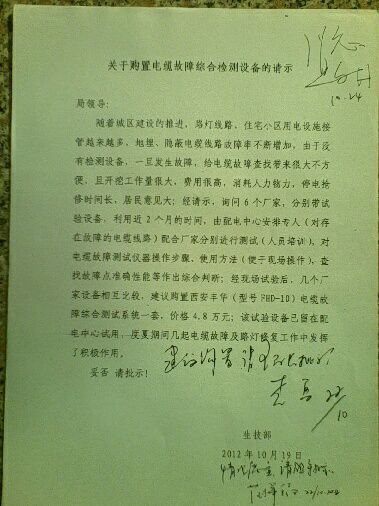 10.24
关于购置电缆故障综合检测设备的请示
局领导：
随着城区建设的推进，路灯线路、住宅小区用电设施接
管越来越多，地埋、隐蔽电缆线路故障率不断增加，由于没
有检测设备，一旦发生故障，给电缆故障查找带来很大不方
便，且开挖工作量很大，费用很高，消耗人力物力，停电抢
修时间长，居民意见大；经请示，询问 6 个厂家，分别带试
验设备，利用近 2 个月的时间，由配电中心安排专人（对存
在故障的电缆线路）配合厂家分别进行测试（人员培训），对
电缆故障测试仪器操作步骤、使用方法（便于现场操作）、查
找故障点准确性能等作出综合判断；经现场试验后，几个厂
家设备相互比较，建议购置西安丰华（型号 FHD-1D）电缆故
障综合测试系统一套，价格 4.8 万元；该试验设备已留在配
电中心试用，度夏期间几起电缆故障及路灯修复工作中发挥
了积极作用。
妥否 请批示！
建议购置
22/10
生技部
2012 年 10 月 19 日